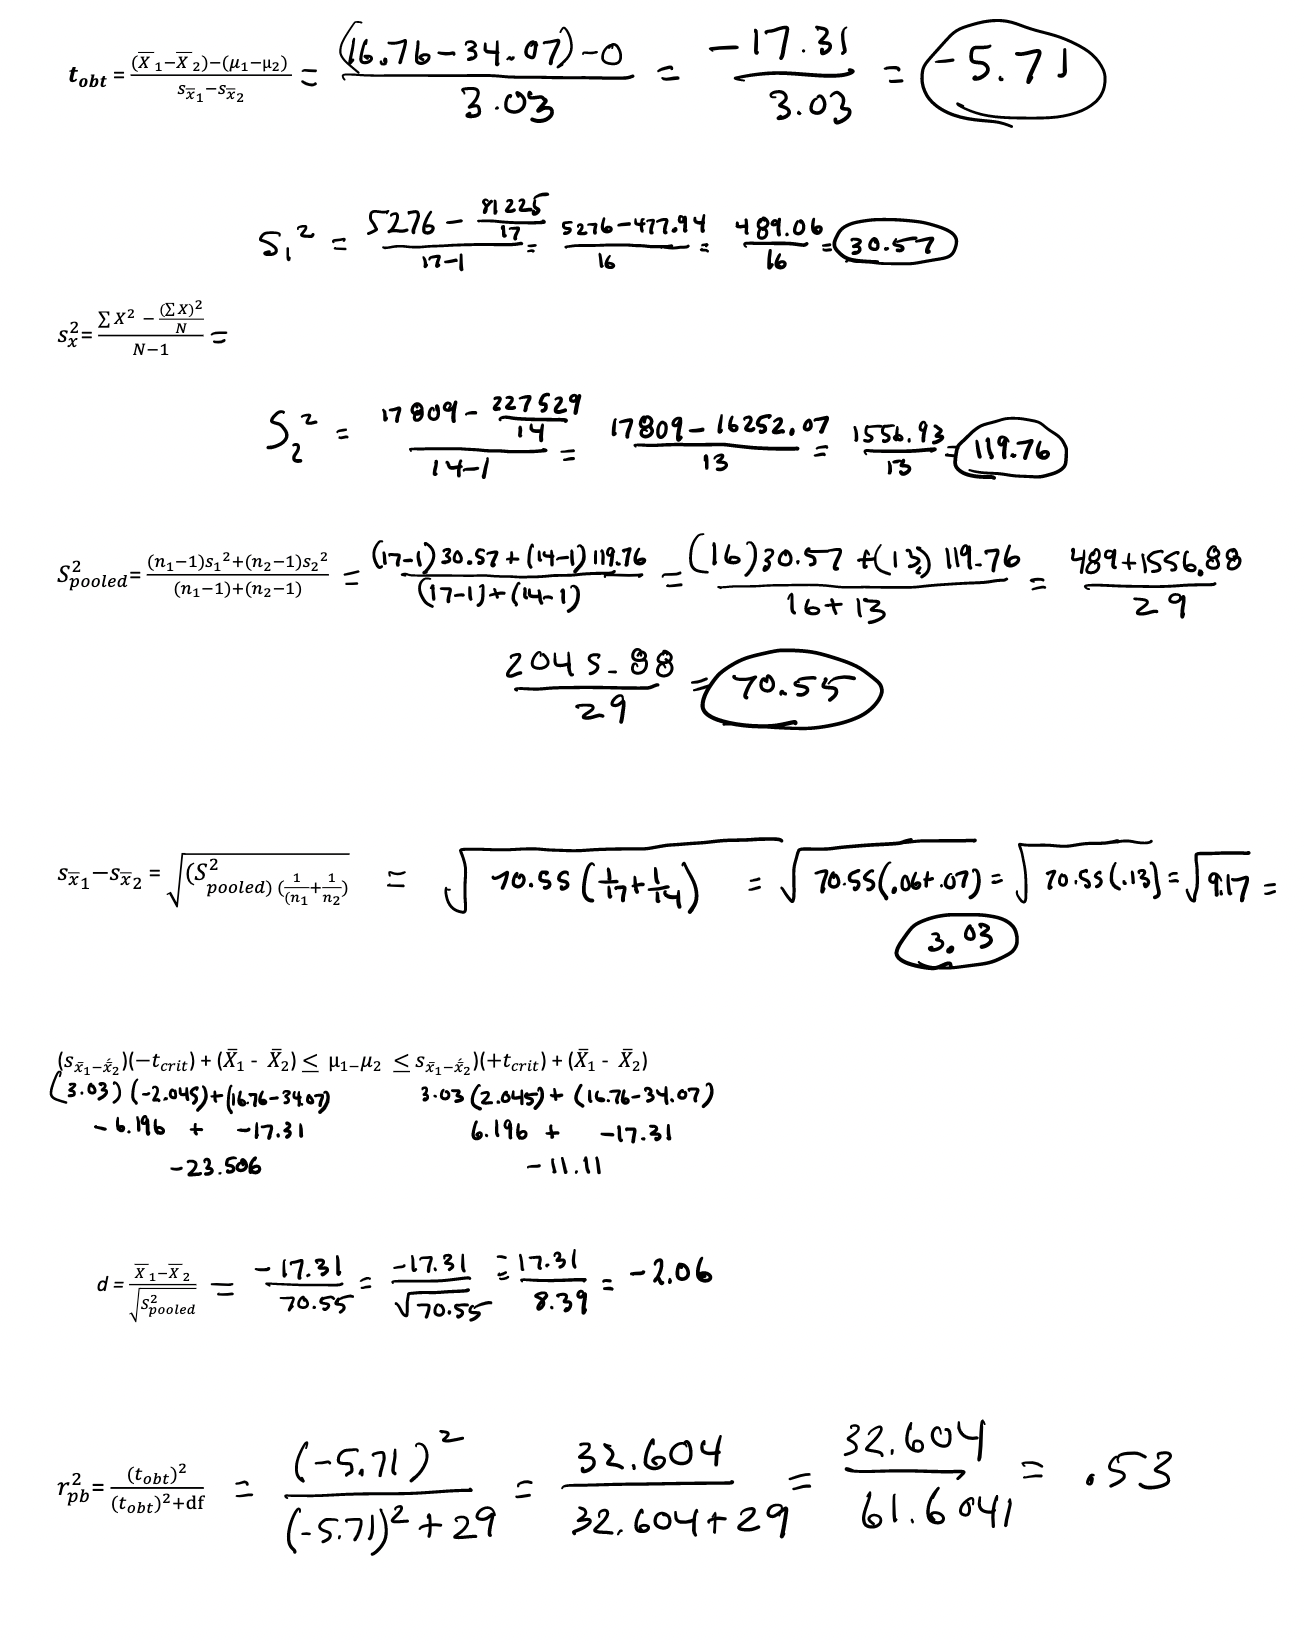 t_obt = ((X̄ 1−X̄ 2)−(μ1−μ2)) / (s_x̄1−s_x̄2) = ((16.76-34.07)-0) / 3.03 = -17.31 / 3.03 = -5.71
S₁² = (5276 - 81225/17) / (17-1) = (5276-477.94) / 16 = 489.06 / 16 = 30.57
s²ₓ= (∑X² − (∑X)²/N) / (N−1) =
S₂² = (17809 - 227529/14) / (14-1) = (17809-16252.07) / 13 = 1556.93 / 13 = 119.76
S²pooled= ((n₁−1)s₁²+(n₂−1)s₂²) / ((n₁−1)+(n₂−1)) = ((17-1)30.57+(14-1)119.76) / ((17-1)+(14-1)) = ((16)30.57+(13)119.76) / (16+13) = (489+1556.88) / 29
2045.88 / 29 = 70.55
s_x̄1−s_x̄2 = √((S²pooled) (1/(n₁ + 1/n₂) = √70.55(1/17+1/14) = √70.55(.06+.07) = √70.55(.13) = √9.17 =
3.03
(s_x̄1−x̄2)(−t_crit) + (X̄₁ - X̄₂) ≤ μ₁−μ₂ ≤ s_x̄1−x̄2)(+t_crit) + (X̄₁ - X̄₂)
(3.03)(-2.045)+(16.76-34.07) 3.03(2.045)+(16.76-34.07)
-6.196 + -17.31 6.196 + -17.31
-23.506 -11.11
d = (X̄ 1−X̄ 2) / √S²pooled = -17.31 / 70.55 = -17.31 / √70.55 = 17.31 / 8.39 = -2.06
r²pb= (t_obt)² / ((t_obt)²+df) = (-5.71)² / ((-5.71)²+29) = 32.604 / (32.604+29) = 32.604 / 61.6041 = .53